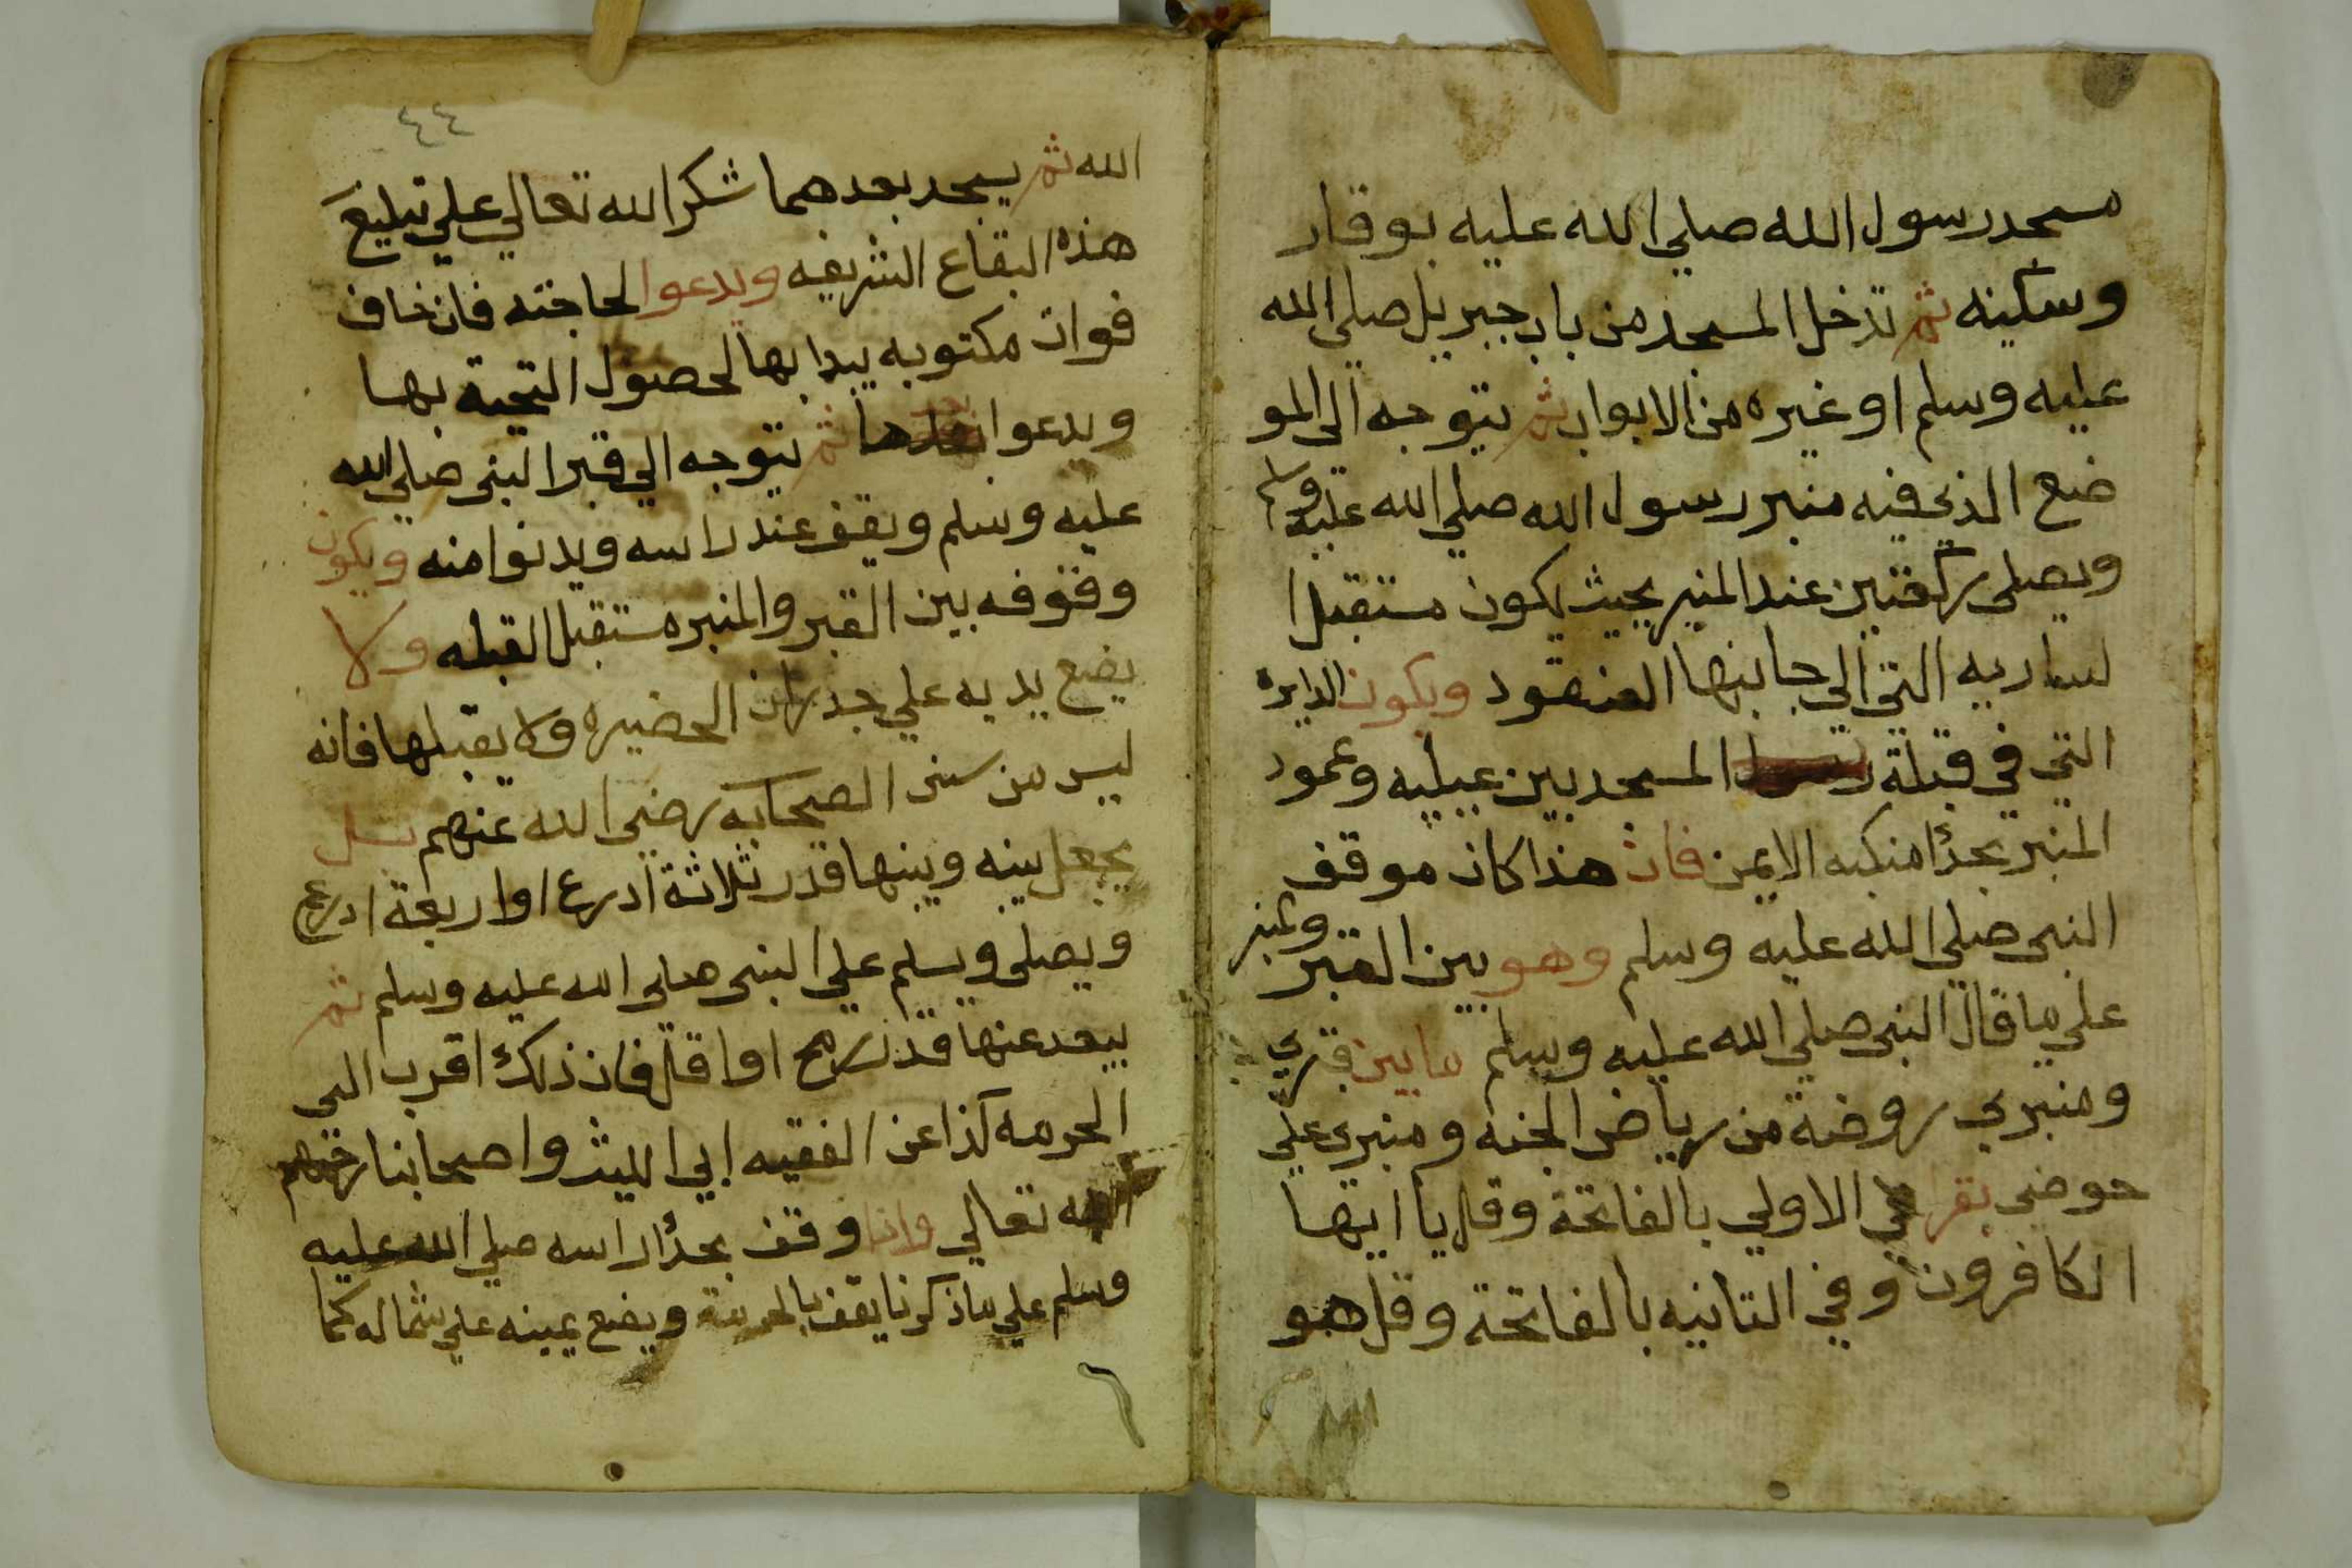 مسجد رسول الله صلي الله عليه بوقار
وسكينه ثم تدخل المسجد من باب جبريل صلي الله
عليه وسلم او غيره من الابواب ثم يتوجه الى المو
ضع الذي فيه منبر رسول الله صلي الله عليه وسلم
ويصلى ركعتين عند المنبر بحيث يكون مستقبلا
لساريه التي الي جانبها العنقود ويكون الدايره
التي في قبلة المسجد بين عينيه وعمود
المنبر بحذا منكبه الايمن فان هذا كان موقف
النبي صلي الله عليه وسلم وهو بين القبر ومنبر
علي ما قال النبي صلي الله عليه وسلم ما بين قبري
ومنبري روضة من رياض الجنه ومنبري علي
حوضي يقرا في الاولي بالفاتحة وقل يا ايها
الكافرون وفي الثانيه بالفاتحة وقل هو
٤٤
الله ثم يسجد بعدهما شكرا لله تعالي علي تبليغ
هذه البقاع الشريفه ويدعوا لحاجته فان خاف
فوات مكتوبه يبدا بها لحصول التحية بها
ويدعوا بعدها ثم يتوجه الي قبر النبي صلي الله
عليه وسلم ويقف عند راسه ويدنوا منه ويكون
وقوفه بين القبر والمنبر مستقبل القبله ولا
يضع يديه علي جدران الحضيره ولا يقبلها فانه
ليس من سنن الصحابه رضي الله عنهم بل
يجعل بينه وبينها قدر ثلاثة ادرع او اربعة ادرع
ويصلى ويسلم علي النبي صلى الله عليه وسلم ثم
يبعد عنها قدر رمح او اقل فان ذلك اقرب الي
الحرمه كذا عن الفقيه ابي الليث واصحابنا رحمهم
الله تعالي واذا وقف بحذا راسه صلي الله عليه
وسلم علي ما ذكرنا يقف ويضع يمينه علي شماله كما